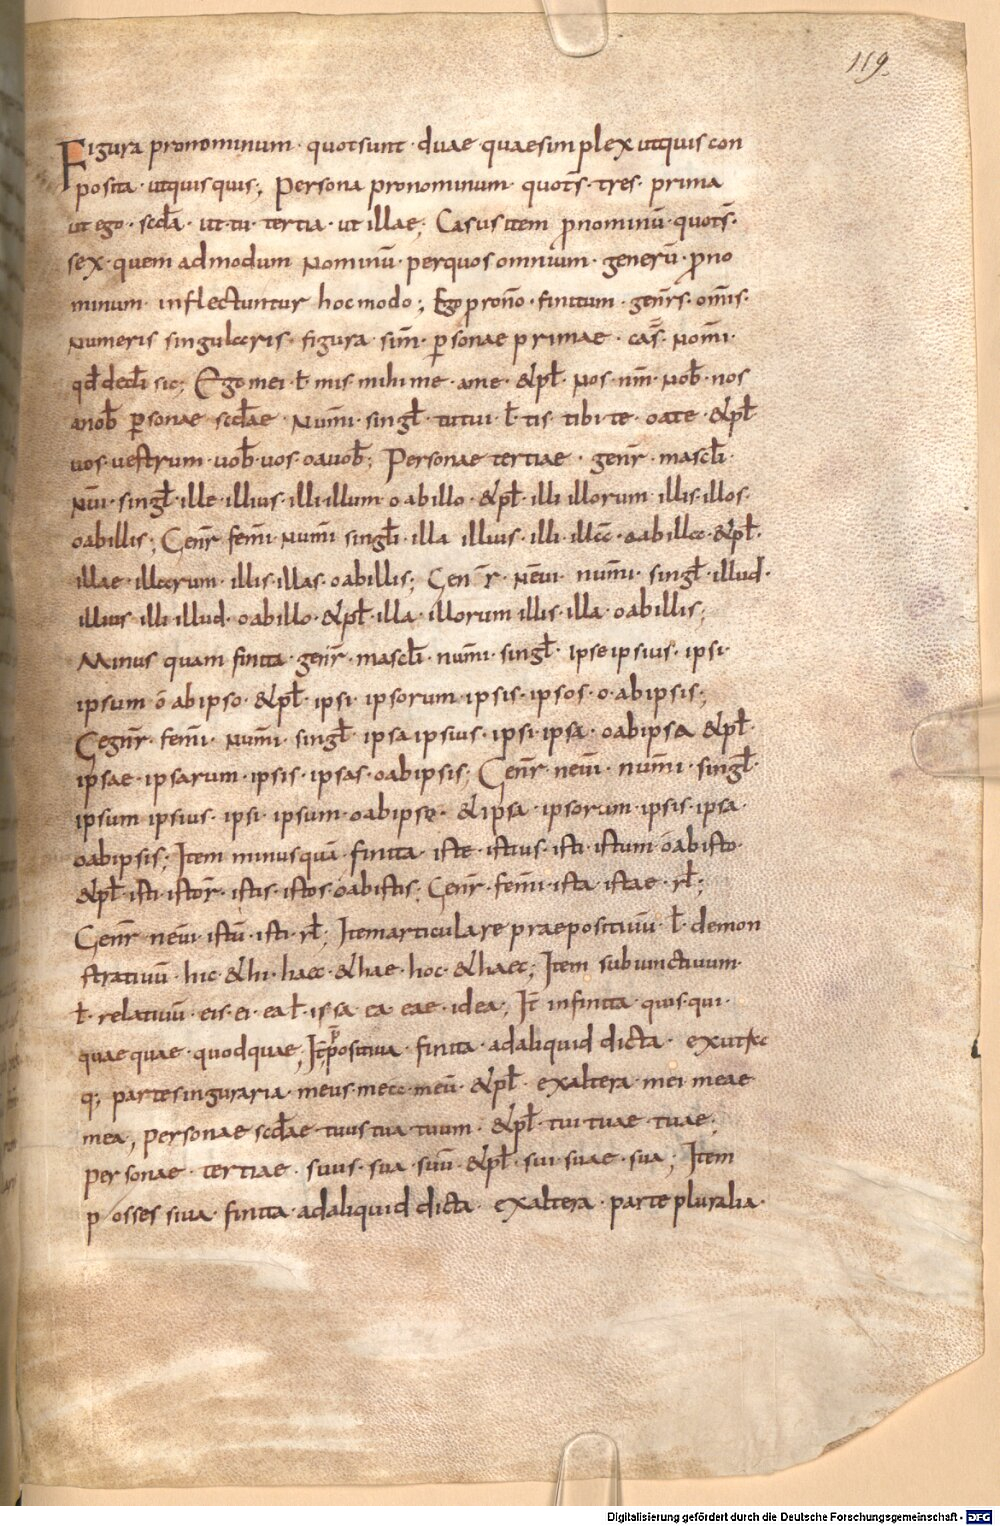 119
Figura pronominum · quotsunt · duae · quaesimplex utquis con
posita · utquisquis; Persona pronominum · quot s̄ · tres · prima
ut ego · scd̄a · ut tu · tertia · ut illae; Casus item p̄nominū · quot s̄ ·
sex · quem admodum Nominū · perquos omnium · generū · p̄no
minum · inflectuntur hoc modo; Ego pronō · finitum · genr̄s · om̄is ·
Numeris singularis · figura · sim̄ · p̄sonae primae · cas̄ · Nom̄i ·
qd̄ decl̄i sic; Ego mei · ł mis mihi me · ame · &pł · Nos · nr̄m · Nob̄ · nos
anob̄ p̄sonae scd̄ae · Num̄i · singł · tu tui · ł tis tibi · te · oate · &pł
uos · uestrum · uob̄ · uos · oauob̄; Personae tertiae · genr̄ · mascł̄i ·
Nūi · singł · ille · illius · illi · illum · o abillo · &pł · illi illorum · illis · illos ·
oabillis; Genr̄ fem̄i · Num̄i singłi · illa illius · illi · illa · oabilla · &pł ·
illae · illarum · illis · illas · oabillis; Gen r̄ · Neūi · num̄i · singł · illud ·
illius illi illud · oabillo · &pł · illa · illorum illis · illa · oabillis;
Minus quam finita · genr̄ · mascł̄i · num̄i · singł · Ipse ipsius · ipsi ·
ipsum ō abipso · &pł · ipsi · ipsorum · ipsis · ipsos · o · abipsis;
Gegnr̄ · fem̄i · Num̄i · singł · ipsa ipsius · ipsi · ipsā · oabipsa &pł ·
ipsae · ipsarum · ipsis · ipsas · oabipsis; Genr̄ · neūi · num̄i · singł ·
ipsum ipsius · ipsi · ipsum · oabipso · &ipsa · ipsorum · ipsis · ipsa ·
oabipsis; Item minusquā · finita · iste · istius · isti · istum · oabisto ·
&pł · isti · istor̄ · istis · istos · oabistis; Genr̄ · fem̄i · ista · istae · rł;
Genr̄ neūi · istū · isti · rł; Item articulare praepositiuū · ł · demon
stratiuū · hic · &hi · haec · &hae · hoc · &haec; Item subiunctiuum ·
ł · relatiuū · eis · ei · ea ł · is sa ea eae · idea; It̄ infinita · quis · qui ·
quae quae · quodquae; It̄ p̄positiua · finita · ad aliquid dicta · exutrac
q; parte singuraria · meus · mea · meū · &pł · exaltera · mei · meae
mea; personae scd̄ae · tuus tua · tuum · &pł · tui · tuae · tuae;
Personae · tertiae · suus · sua · suū · &pł · sui · suae · sua; Item
p osses siua · finita · ad aliquid dicta · exaltera · parte pluralia ·
Digitalisierung gefördert durch die Deutsche Forschungsgemeinschaft - DFG